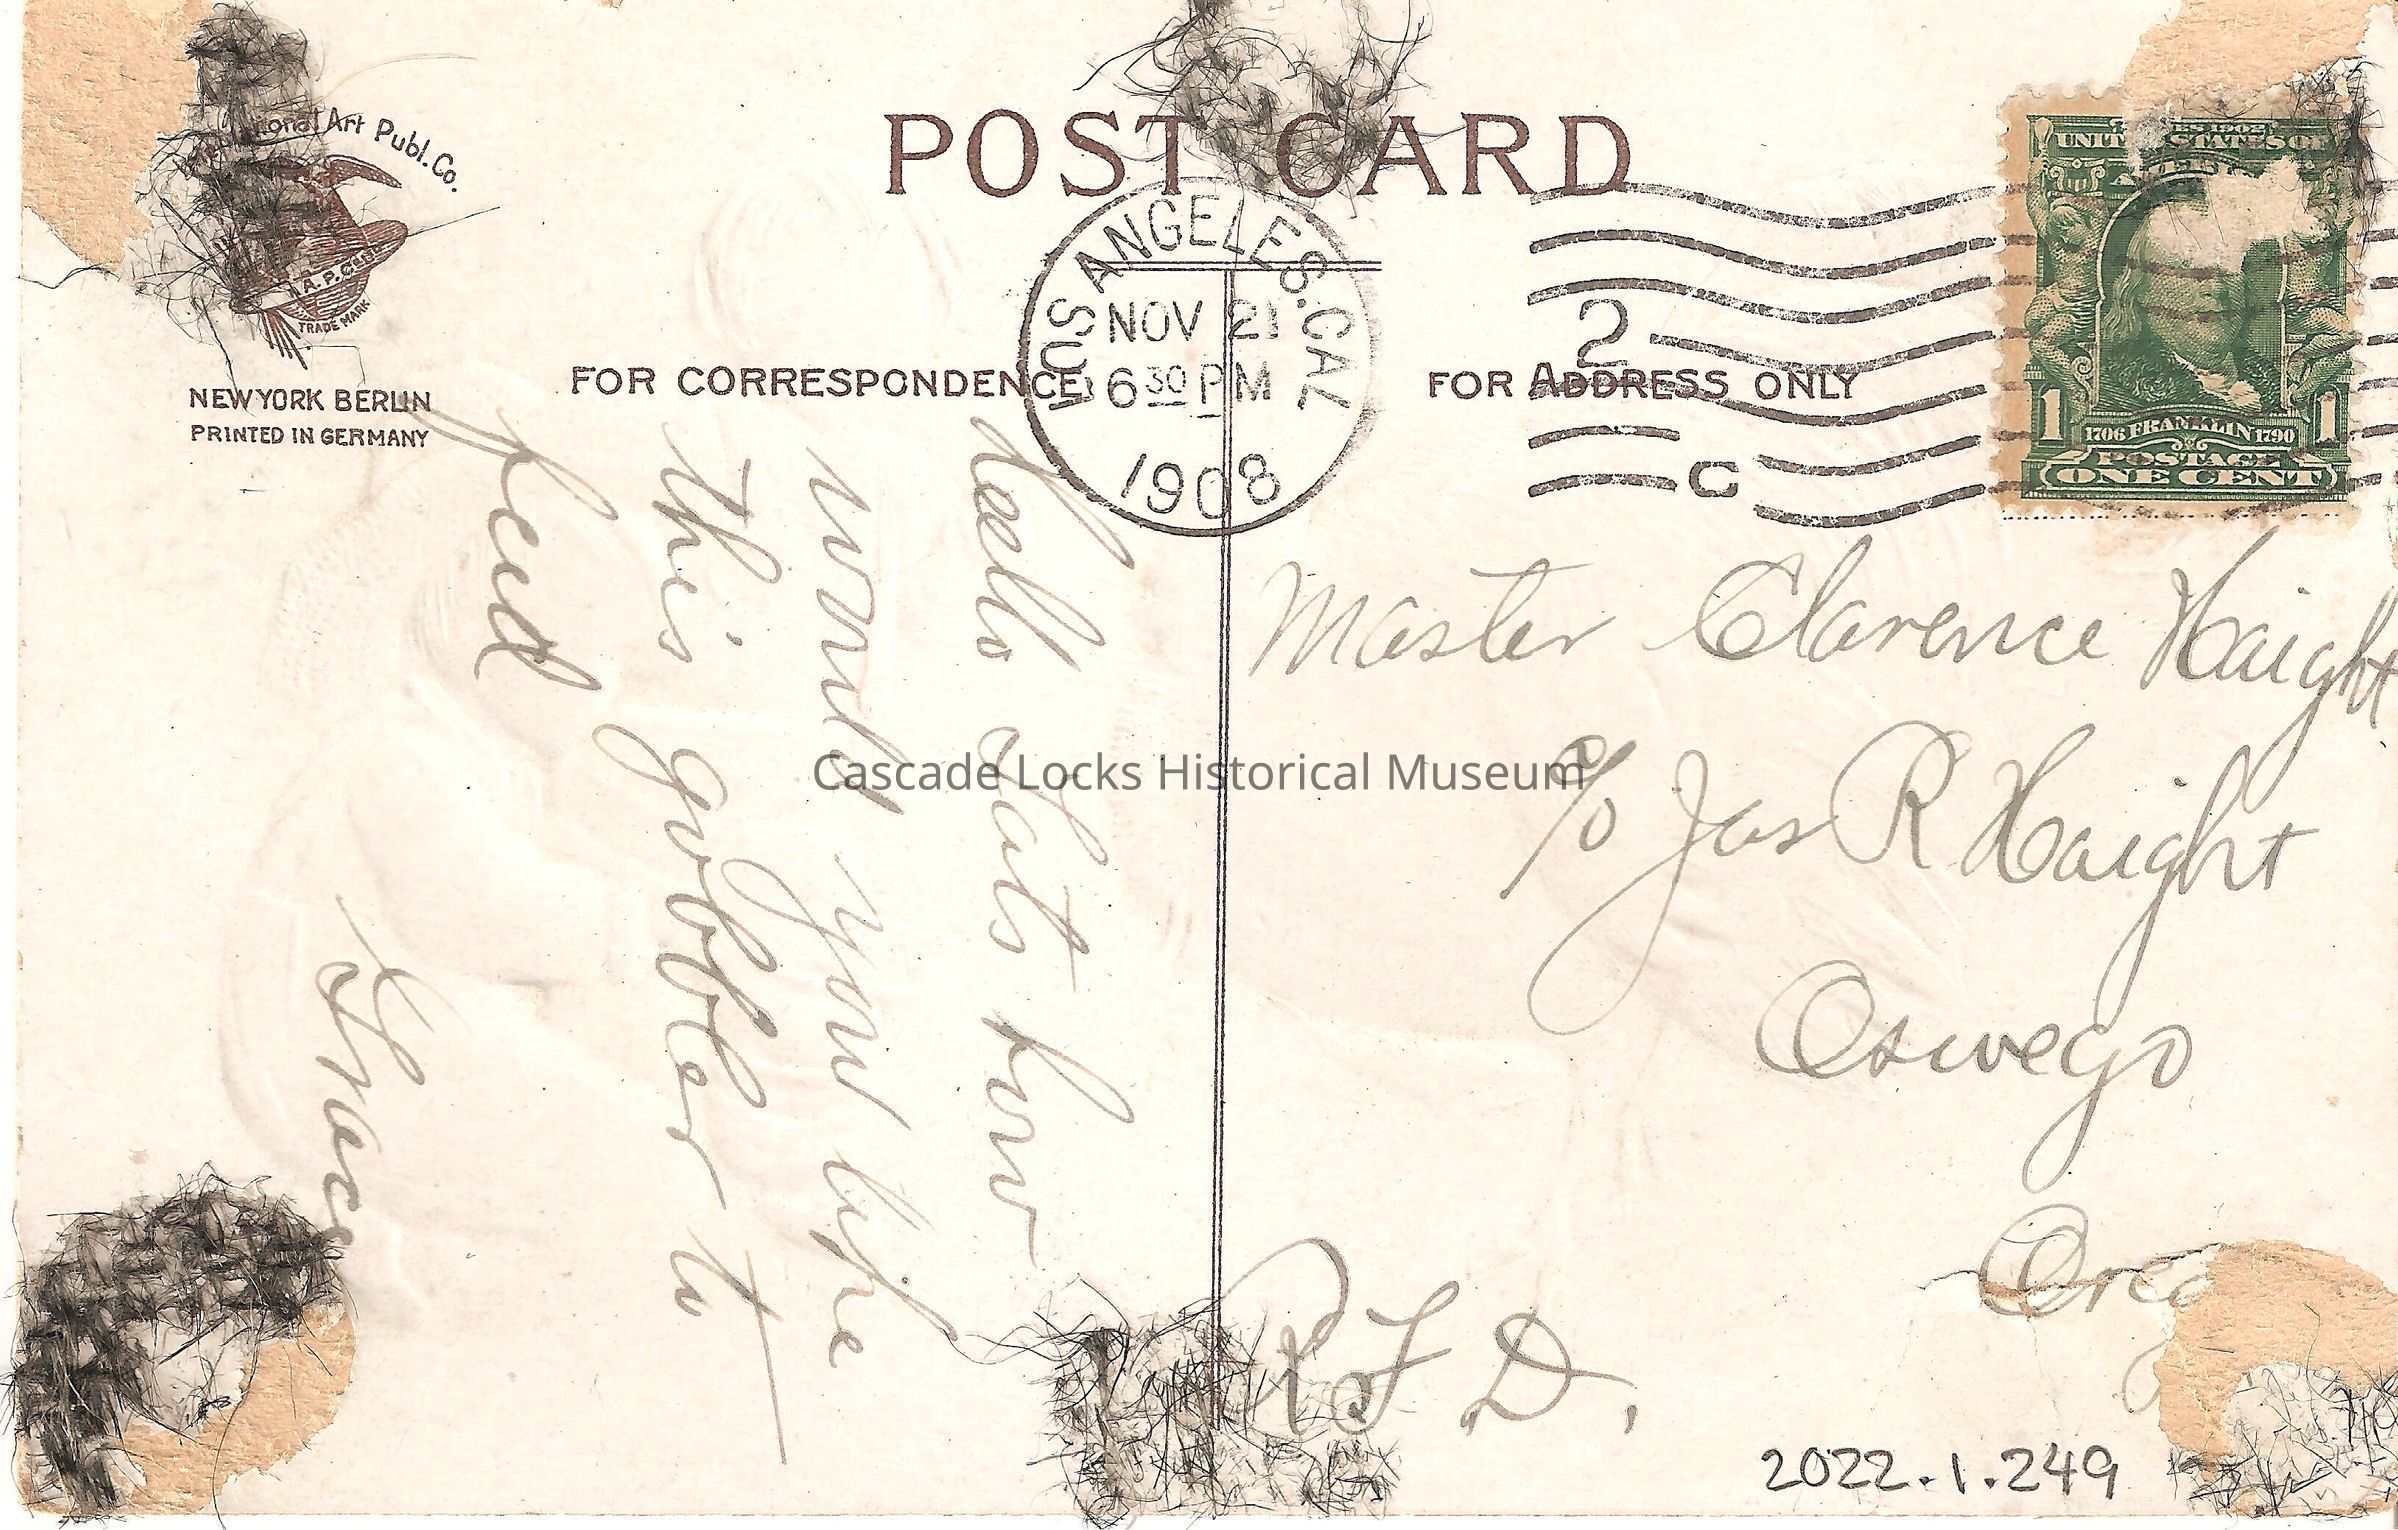 POST CARD
onal Art Publ. Co.
A.P.C.
TRADE MARK
NEW YORK BERLIN
PRINTED IN GERMANY
FOR CORRESPONDENCE
FOR ADDRESS ONLY
LOS ANGELES. CAL
NOV 21
6 30 PM
1908
2
C
UNITED STATES OF
1706 FRANKLIN 1790
1 1
POSTAGE
ONE CENT
Hello Stots how
would you like
this gobbler to
feed
Grace
Master Clarence Haight
c/o Jas R Haight
Oswego
Oreg
R.F.D.
2022.1.249
Cascade Locks Historical Museum